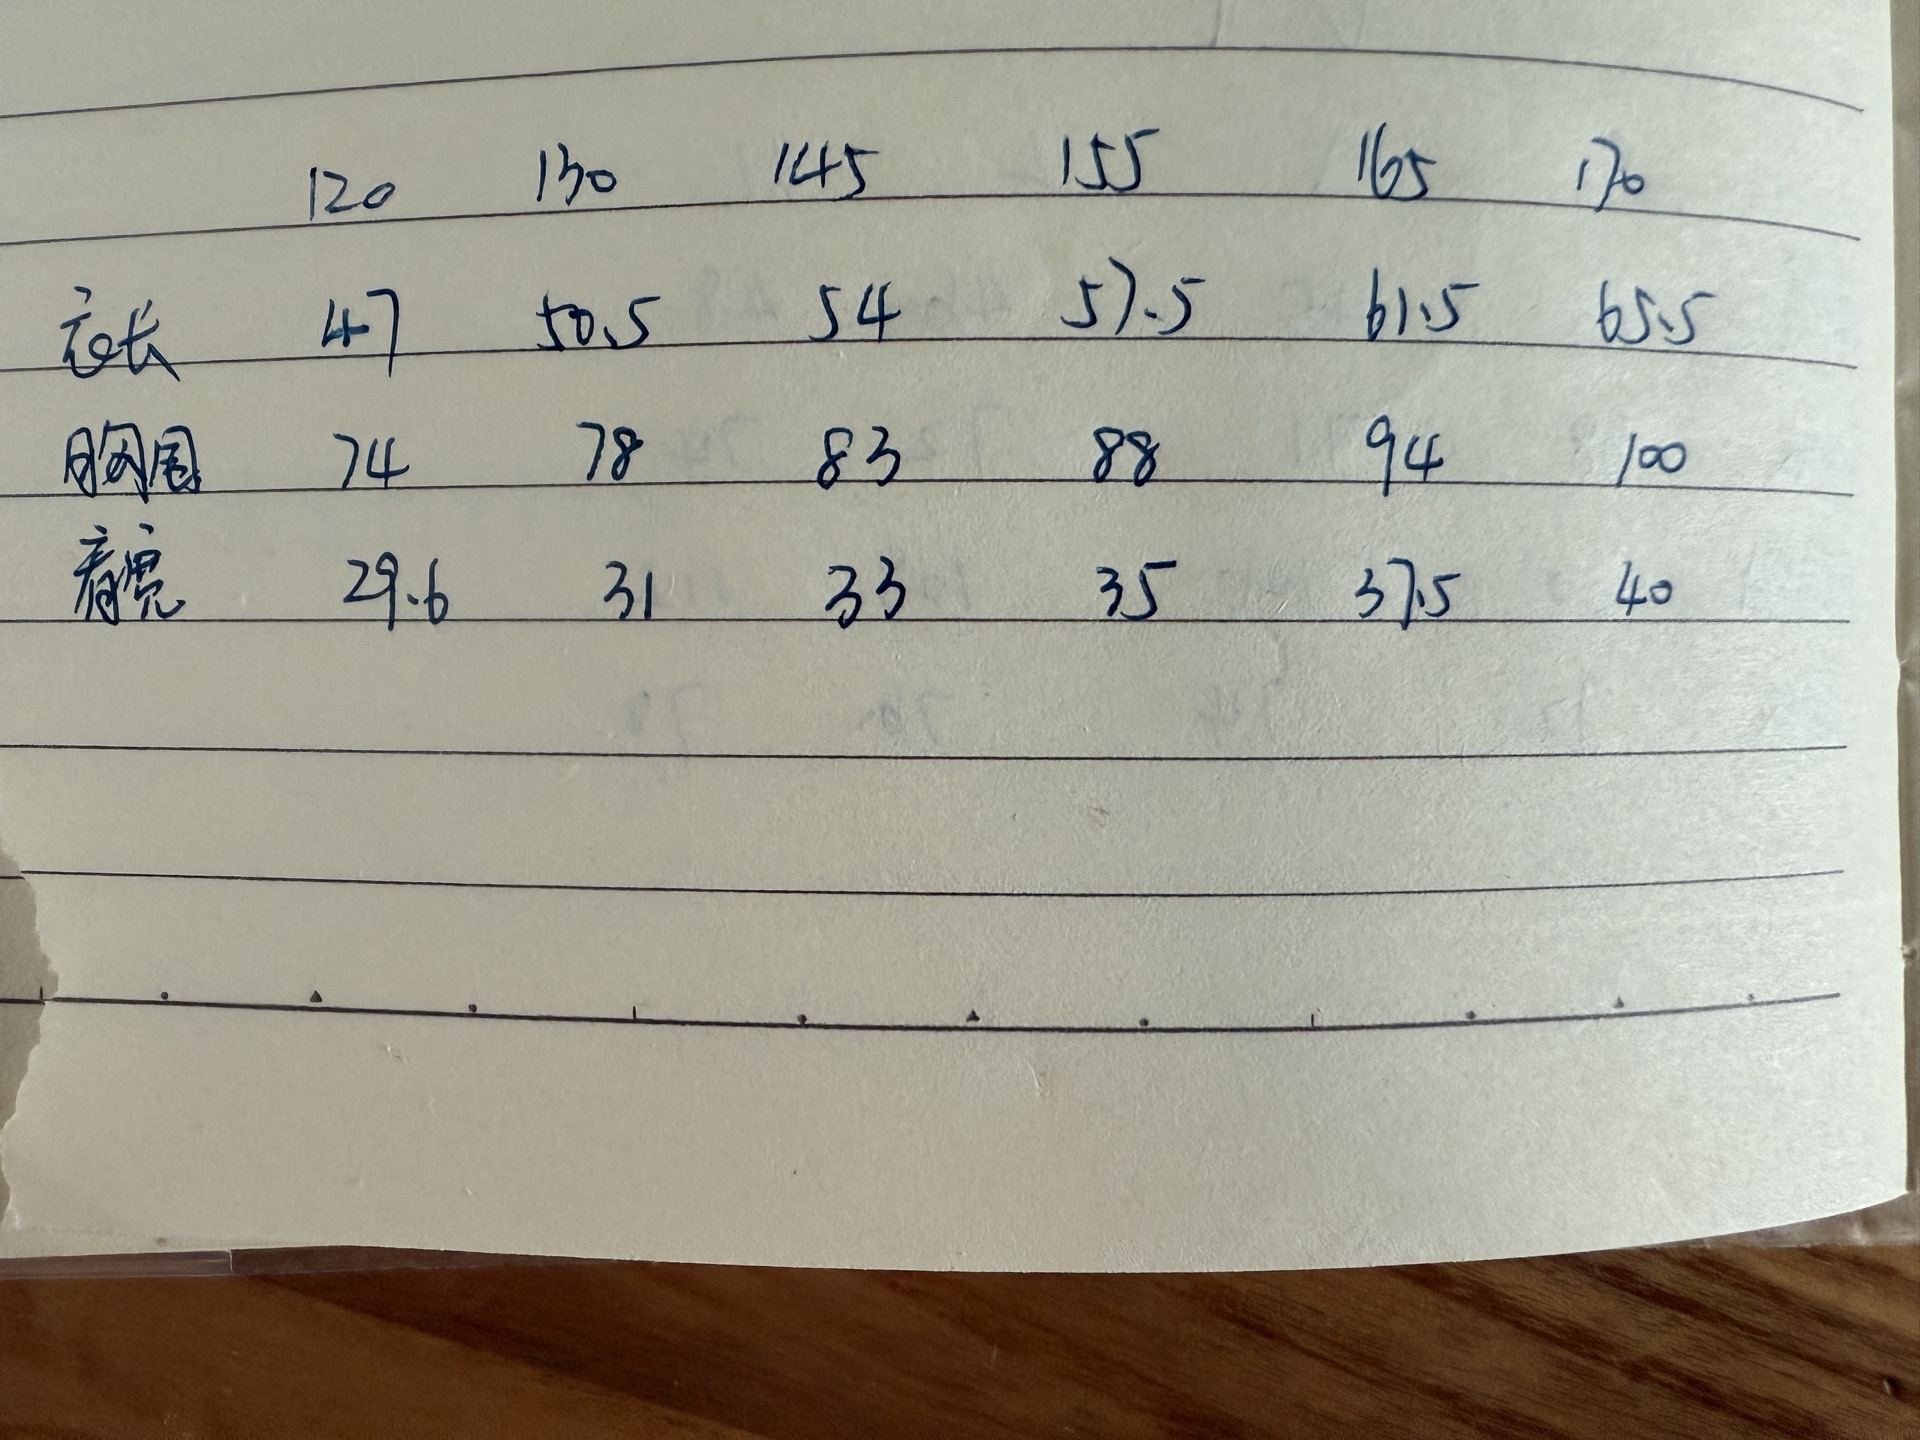 120 130 145 155 165 170
衣长 47 50.5 54 57.5 61.5 65.5
胸围 74 78 83 88 94 100
肩宽 29.6 31 33 35 37.5 40